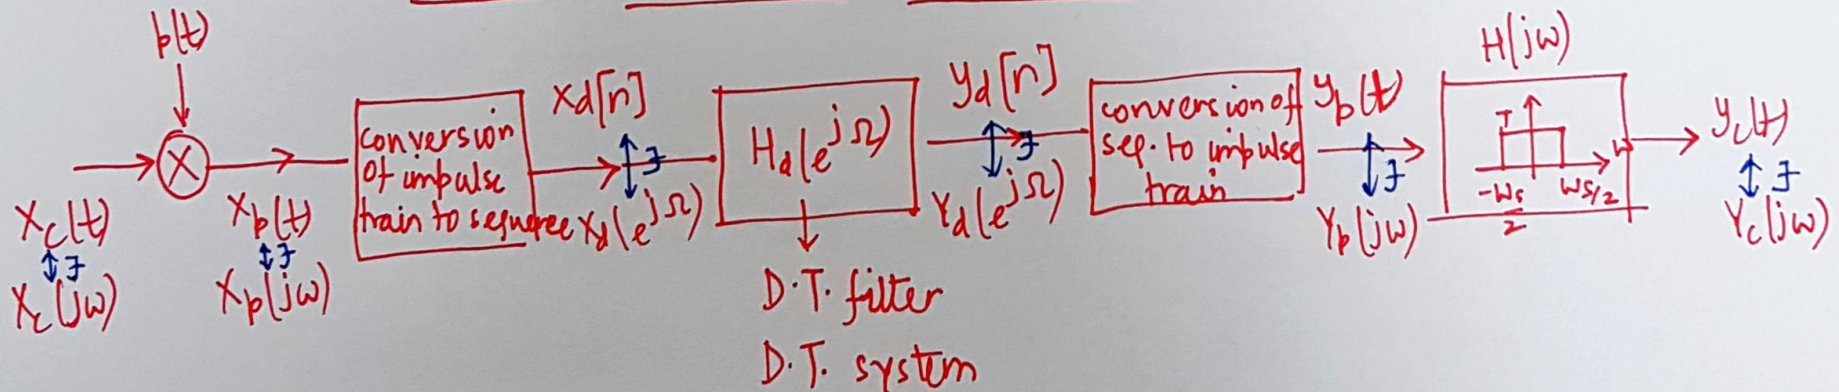 p(t)
x_c(t)
↕ F
X_c(jω)
x_p(t)
↕ F
X_p(jω)
conversion
of impulse
train to sequence
x_d[n]
↕ F
X_d(e^{jΩ})
H_d(e^{jΩ})
D.T. filter
D.T. system
y_d[n]
↕ F
Y_d(e^{jΩ})
conversion of
seq. to impulse
train
y_p(t)
↕ F
Y_p(jω)
H(jω)
T
ω
-ωs/2
ωs/2
y_c(t)
↕ F
Y_c(jω)